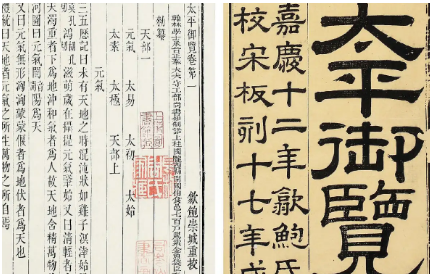 太平御覽
嘉慶十二年歙鮑氏
校宋板刻十七年成
太平御覽卷第一
歙鮑崇城重校
翰林學士承旨正奉大夫守工部尚書知制誥上柱國隴西縣開國伯食邑七百戶賜紫金魚袋臣
勅纂
天部一
元氣 太易 太初 太始
太素 太極 天部上
元氣
三五歷記曰未有天地之時混沌狀如雞子溟涬始
鴻滋萌歲在攝提元氣肇始又曰清輕者
濁重者下為地沖和氣者為人故天地含精萬物
河圖曰元氣闓陽為天
又曰元氣無形洶洶蒙蒙偃者為地伏者為天也
禮統曰天地者元氣之所生萬物之所自焉